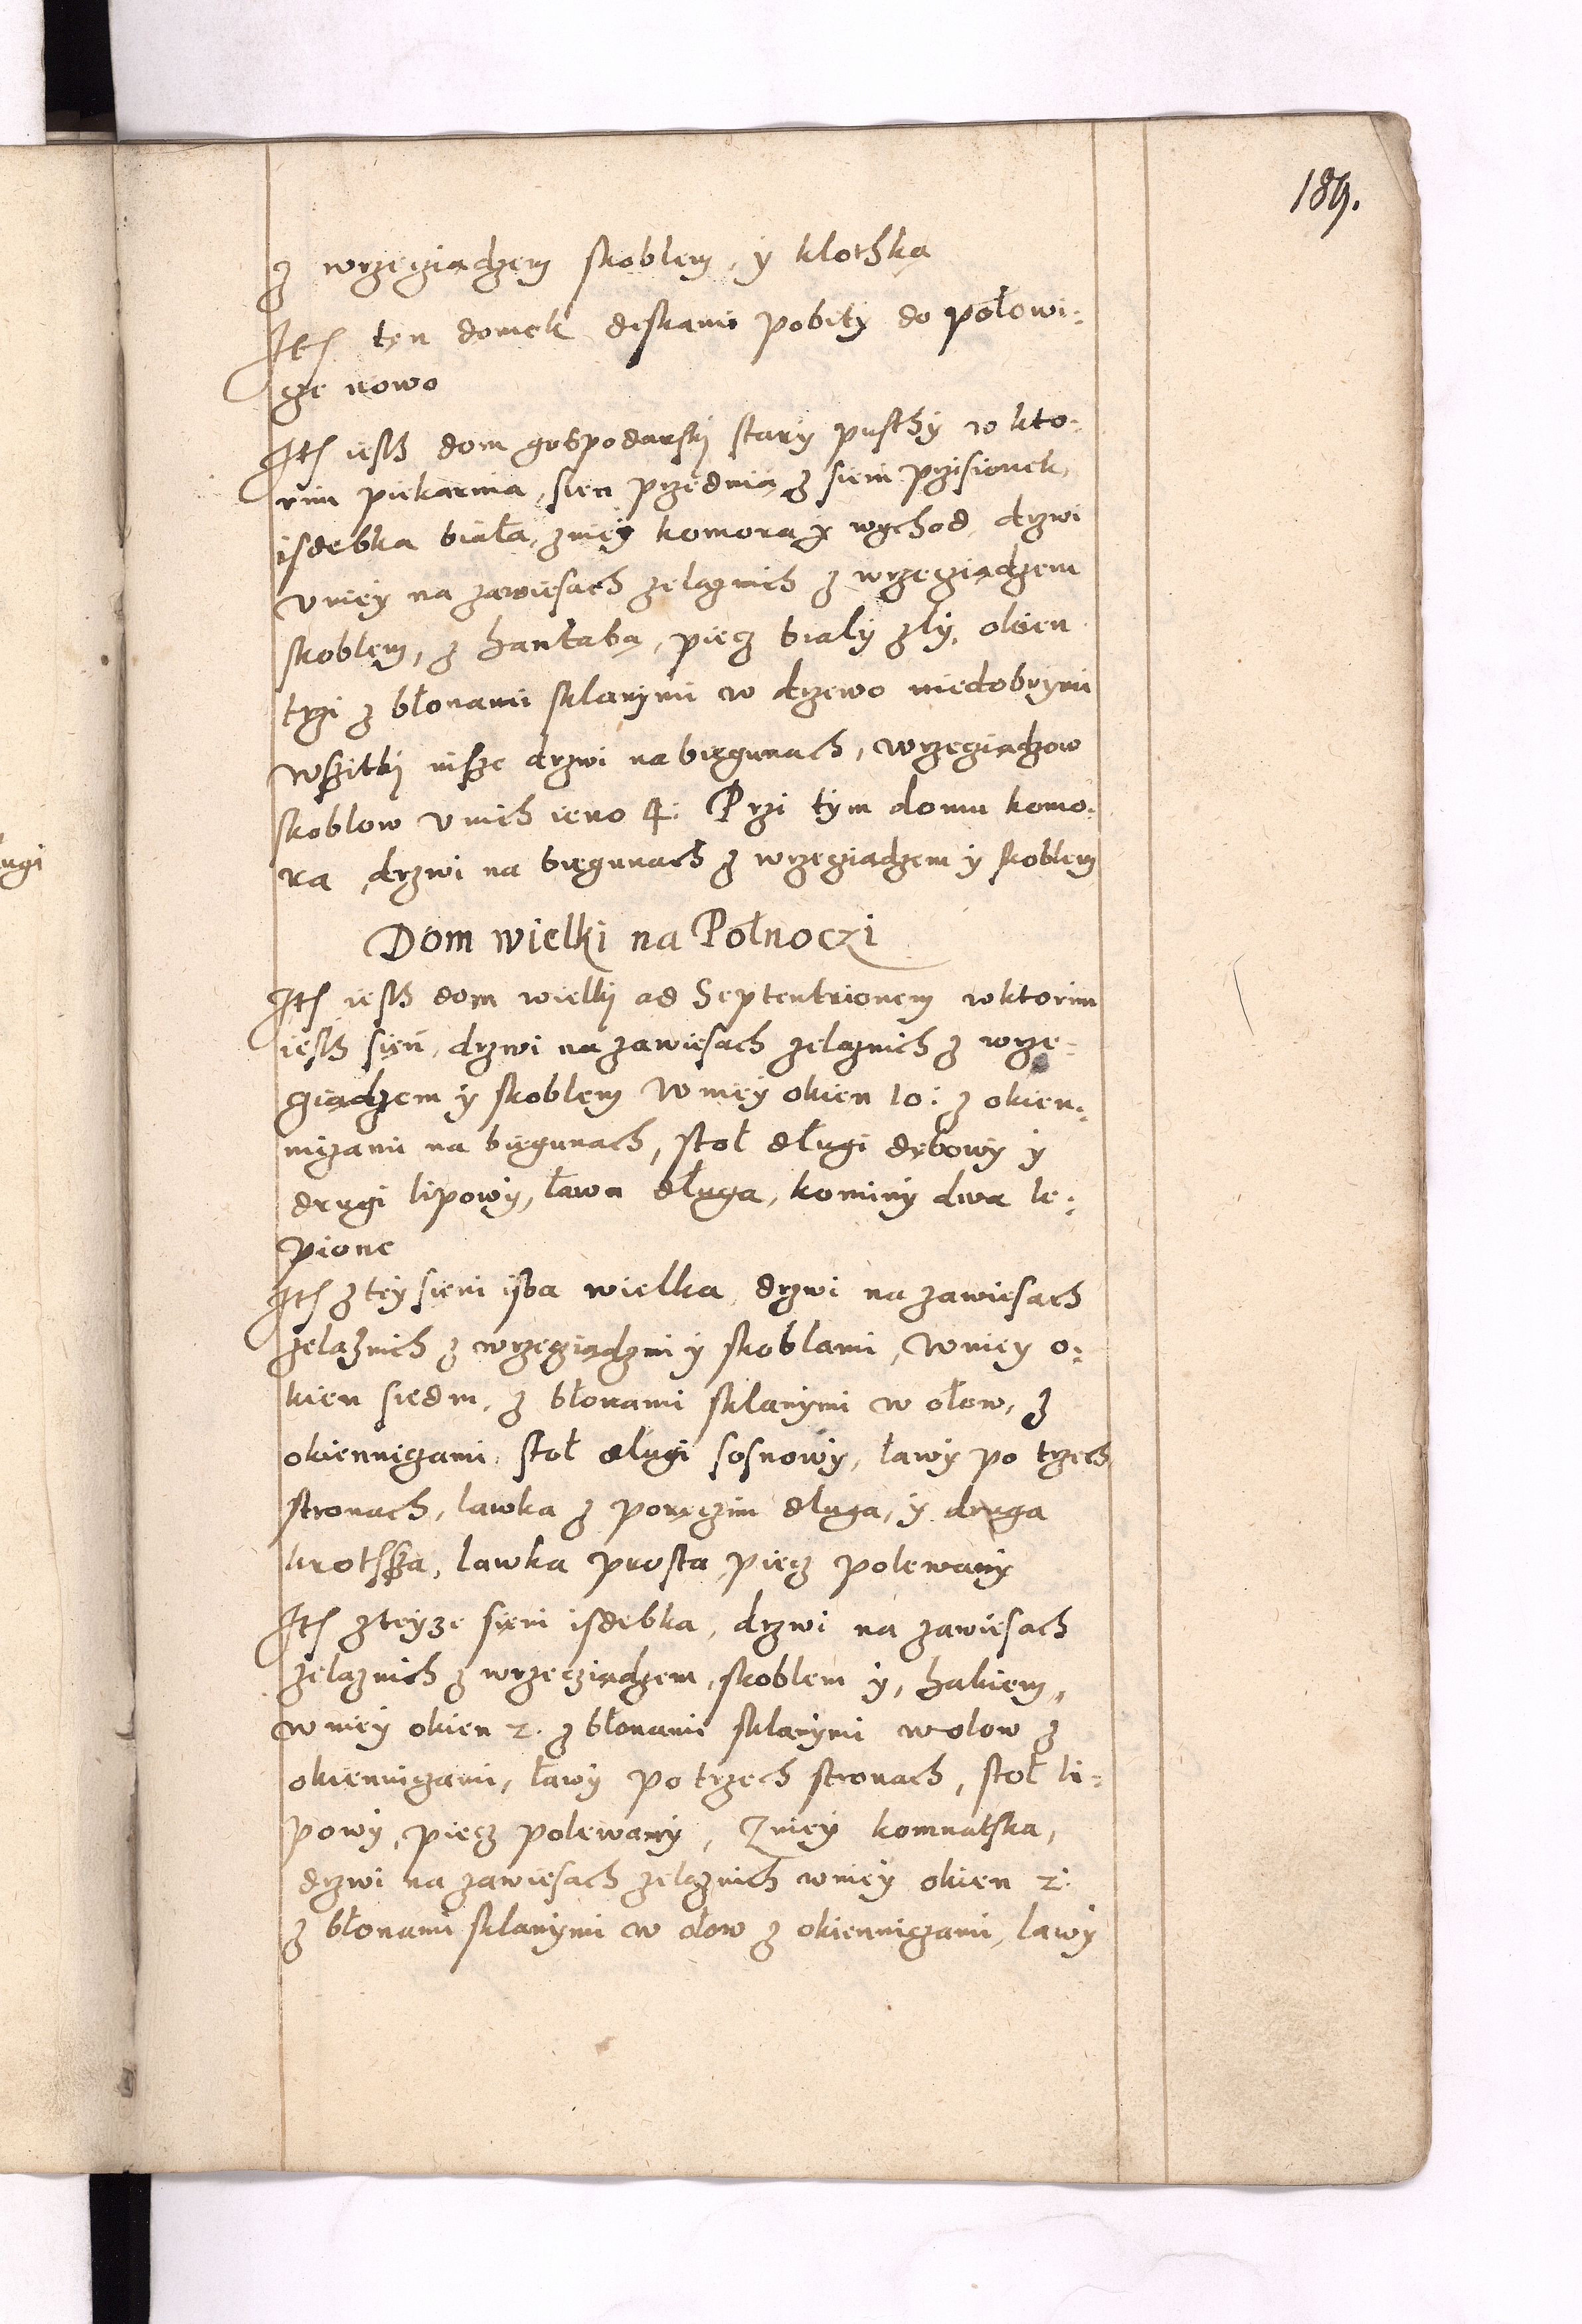 189.
z wrzecziadzem skoblem, y klothką
Itē ten domek deskami pobity do połowi:
cze nowo
Itē iesth dom gospodarski stary pusthy w kto:
rim piekarnia, sien przednia, z sieni przisionek,
isdebka biała, zniey komora y wychod, drzwi
v niey na zawiesach zelaznich z wrzecziadzem
skoblem, z hantabą, piecz biały zły, okien
trzi z błonami sklanymi w drzewo niedobrymi
wszitki insze drzwi na biegunach, wrzecziadzow
skoblow v nich ieno 4: Przi tym domu komo:
ra, drzwi na biegunach z wrzecziadzem y skoblem
Dom wielki na Połnoczi
Itē iesth dom wielki ad Septentrionem w ktorim
iesth sień, drzwi na zawiesach zelaznich z wrze:
cziadzem y skoblem w niey okien 10: z okien:
niczami na biegunach, stoł długi dębowy y
drugi lipowy, ława długa, kominy dwa le:
pione
Itē z tey sieni isba wielka, drzwi na zawiesach
zelaznich z wrzecziadzmi y skoblami, w niey o:
kien siedm, z błonami sklanymi w ołow, z
okienniczami, stoł długi sosnowy, ławy po trzech
stronach, lawka z poręczim długa, y druga
krotsza, lawka prosta, piecz polewany
Itē z teyze sieni isdebka, drzwi na zawiesach
zelaznich z wrzecziadzem, skoblem y, hakiem,
w niey okien 2. z błonami sklanymi w olow z
okienniczami, ławy po trzech stronach, stoł li:
powy, piecz polewany, Zniey komnatska,
drzwi na zawiesach zelaznich w niey okien 2:
z błonami sklanymi w ołow z okienniczami, lawy
ugi